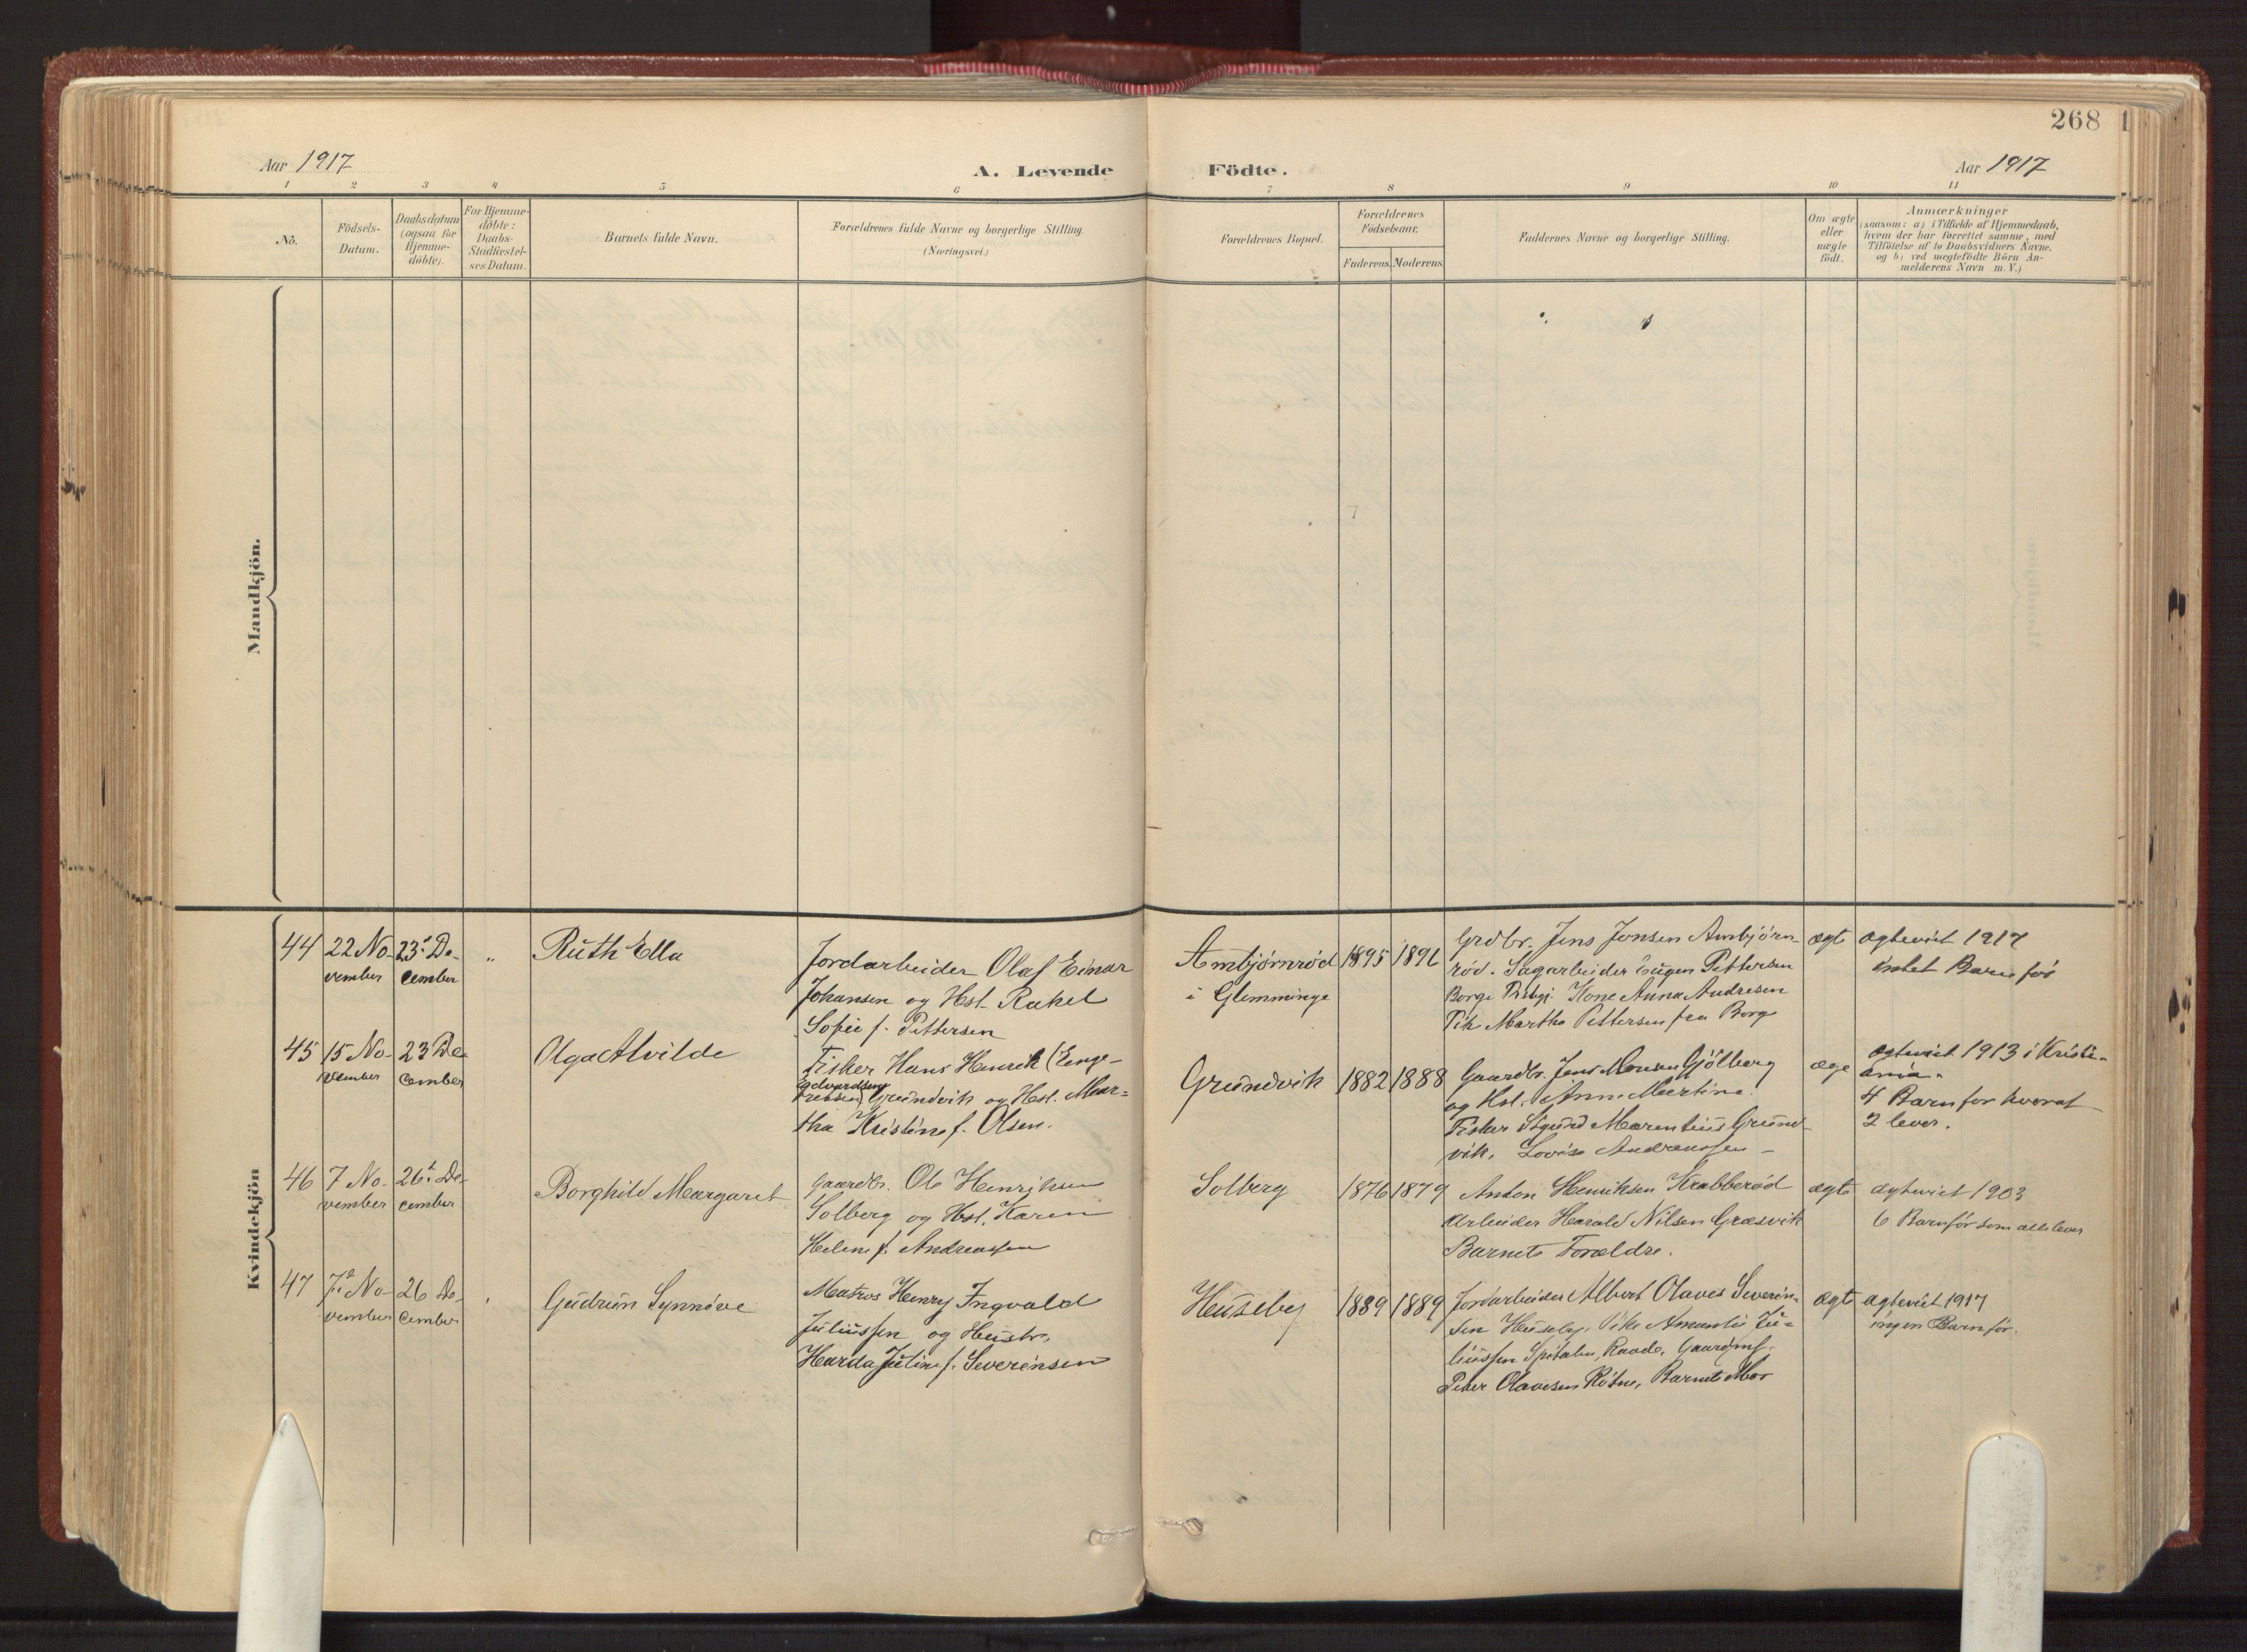 268
Aar 1917
A. Levende Födte.
Aar 1917
1 2 3 4 5 6 7 8 9 10 11
No.
Födsels-
Datum.
Daabsdatum
(ogsaa for
Hjemme-
döbte).
For Hjemme-
döbte:
Daabs-
Stadfæstel-
ses Datum.
Barnets fulde Navn.
Forældrenes fulde Navne og borgerlige Stilling.
(Næringsvei.)
Forældrenes Bopæl.
Forældrenes
Födselsaar.
Faderens. Moderens.
Faddernes Navne og borgerlige Stilling.
Om ægte
eller
uægte
födt.
Anmærkninger
(saasom: a) i Tilfælde af Hjemmedaab,
hvem der har forrettet samme, med
Tilföielse af to Daabsvidners Navne,
og b) ved uægtefödte Börn An-
melderens Navn m. V.)
Mandkjön.
Kvindekjön
44
22 No-
vember
23. De-
cember
"
Ruth Ella
Jordarbeider Olaf Einar
Johansen og Hst. Rakel
Sofie f. Pettersen
Ambjörnröd
i Glemminge
1895
1891
Grdbr. Jens Jonsen Ambjörn-
röd. Sagarbeider Eugen Pettersen
Borge Kone Anna Andresen
Pike Martha Pettersen fra Borge
ægte
ægteviet 1917
intet Barn för
45
15 No-
vember
23 De-
cember
Olga Alvilde
Fisker Hans Henrik (Enge-
Edvardsen
Grundvik og Hst. Mar-
tha Kristine f. Olsen.
Grundvik
1882
1888
Gaardbr. Jens Monsen Gjölberg
og Hst. Anne Martine.
Fisker Sigurd Marentius Grund-
vik, Lovise Andreassen
æge
ægteviet 1913 i Kristi-
ania.
4 Barn för hvoraf
2 lever.
46
7 No-
vember
26. De-
cember
Borghild Margaret
Gaardbr. Ole Henriksen
Solberg og Hst. Karen
Helene f. Andreassen
Solberg
1876
1879
Anton Henriksen Krabberöd
Arbeider Harald Nilsen Græsvik
Barnets Forældre.
ægte
ægteviet 1903
6 Barn för som alle lever
47
7. No-
vember
26 De-
cember
Gudrun Synnöve
Matros Henry Ingvald
Juliussen og Hustr.
Harda Juline f. Severinsen
Huseby
1889
1889
Jordarbeider Albert Olaves Severin-
sen Huseby. Pike Amanda Ju-
liussen Spitalen, Raade, Gaardmf.
Peder Olavesen Rötne, Barnets Mor
ægte
ægteviet 1917
ingen Barn för.